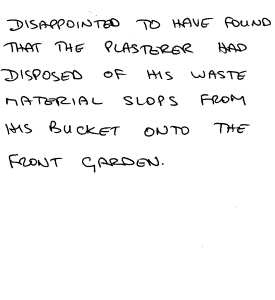 DISAPPOINTED TO HAVE FOUND
THAT THE PLASTERER HAD
DISPOSED OF HIS WASTE
MATERIAL SLOPS FROM
HIS BUCKET ONTO THE
FRONT GARDEN.